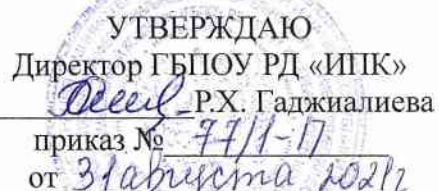 УТВЕРЖДАЮ
Директор ГБПОУ РД «ИПК»
Р.Х. Гаджиалиева
приказ № 77/1-П
от 31 августа 2021г